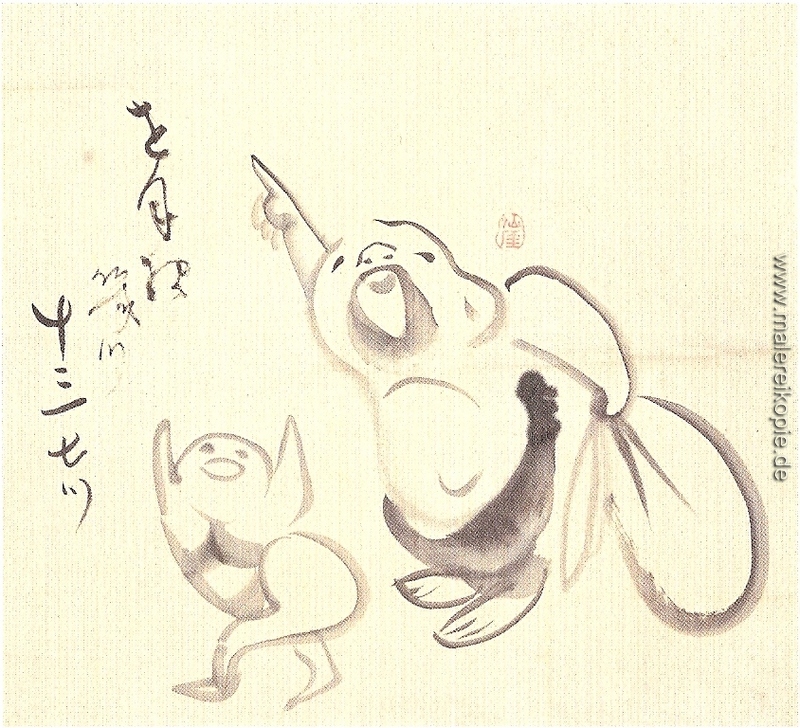 を月様
幾ツ
十三七ツ
仙厓
www.malereikopie.de